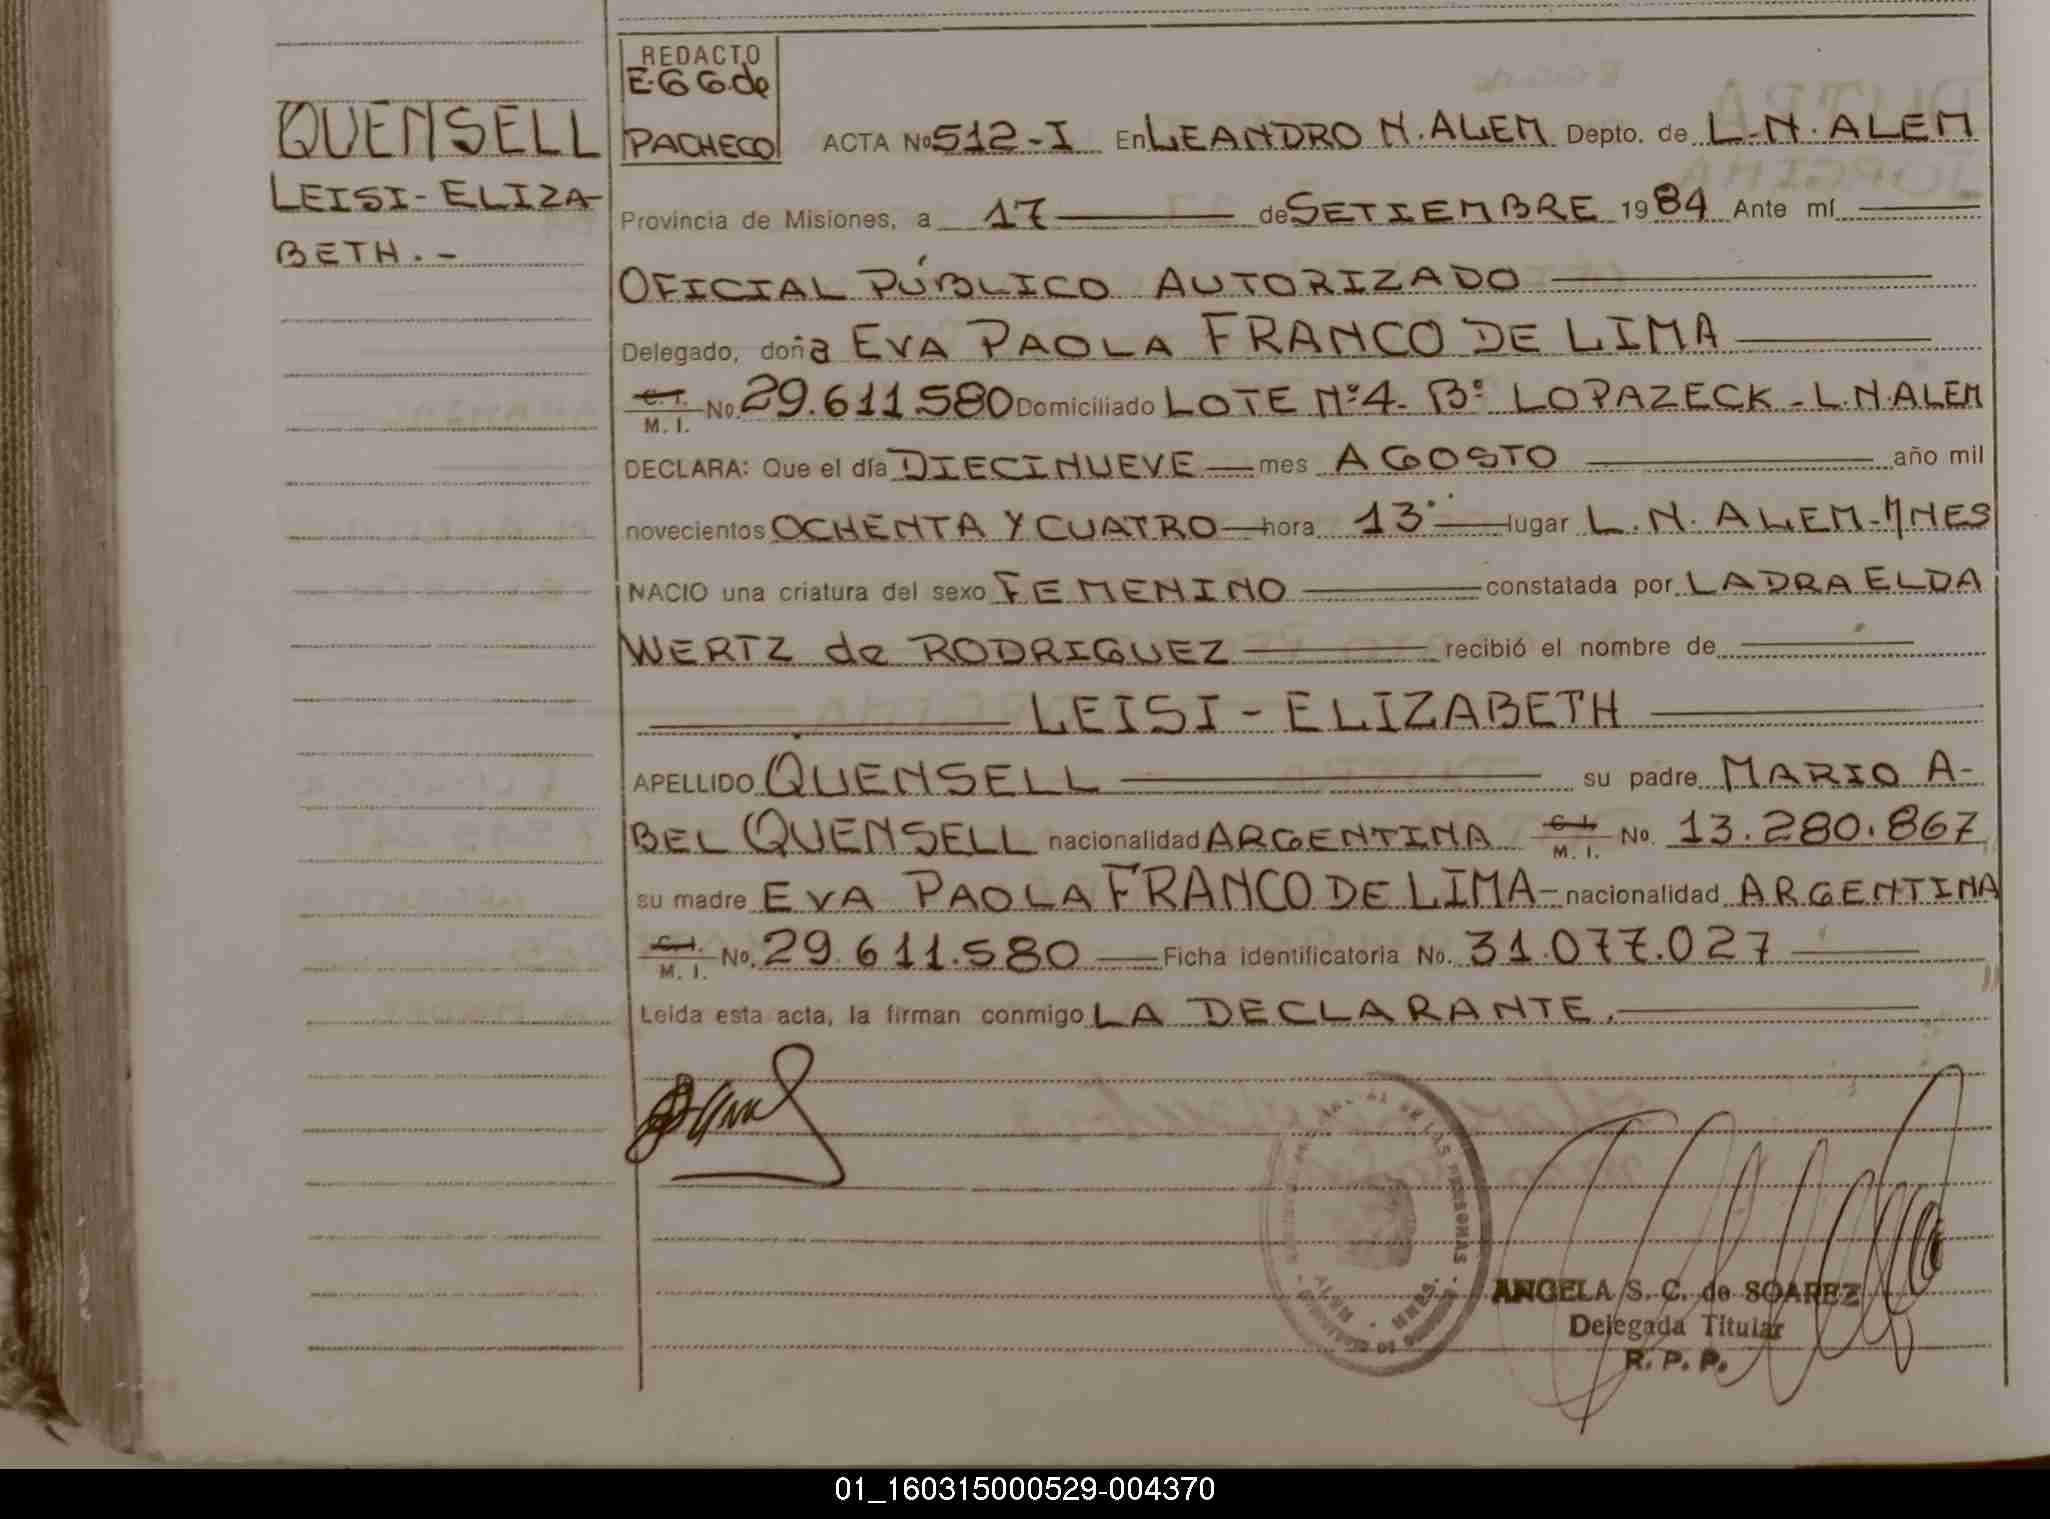 QUENSELL
LEISI-ELIZA-
BETH.-
REDACTO
E.G G.de
PACHECO
ACTA No 512-I En LEANDRO N. ALEM Depto. de L.N. ALEM
Provincia de Misiones, a 17 de SETIEMBRE 1984 Ante mí
OFICIAL PÚBLICO AUTORIZADO
Delegado, doña EVA PAOLA FRANCO DE LIMA
C. I. M. I. No. 29.611.580 Domiciliado LOTE Nº4- Bº LOPAZECK - L.N.ALEM
DECLARA: Que el día DIECINUEVE mes AGOSTO año mil
novecientos OCHENTA Y CUATRO hora 13 lugar L. N. ALEM-MNES
NACIO una criatura del sexo FEMENINO constatada por LA DRA ELDA
WERTZ de RODRIGUEZ recibió el nombre de
LEISI - ELIZABETH
APELLIDO QUENSELL su padre MARIO A-
BEL QUENSELL nacionalidad ARGENTINA C. I. M. I. No. 13.280.867
su madre EVA PAOLA FRANCO DE LIMA- nacionalidad ARGENTINA
C. I. M. I. No. 29.611.580 Ficha identificatoria No. 31.077.027
Leída esta acta, la firman conmigo LA DECLARANTE.
DE LAS PERSONAS
ALEM - MNES.
ANGELA S. C. de SOAREZ
Delegada Titular
R. P. P.
01_160315000529-004370